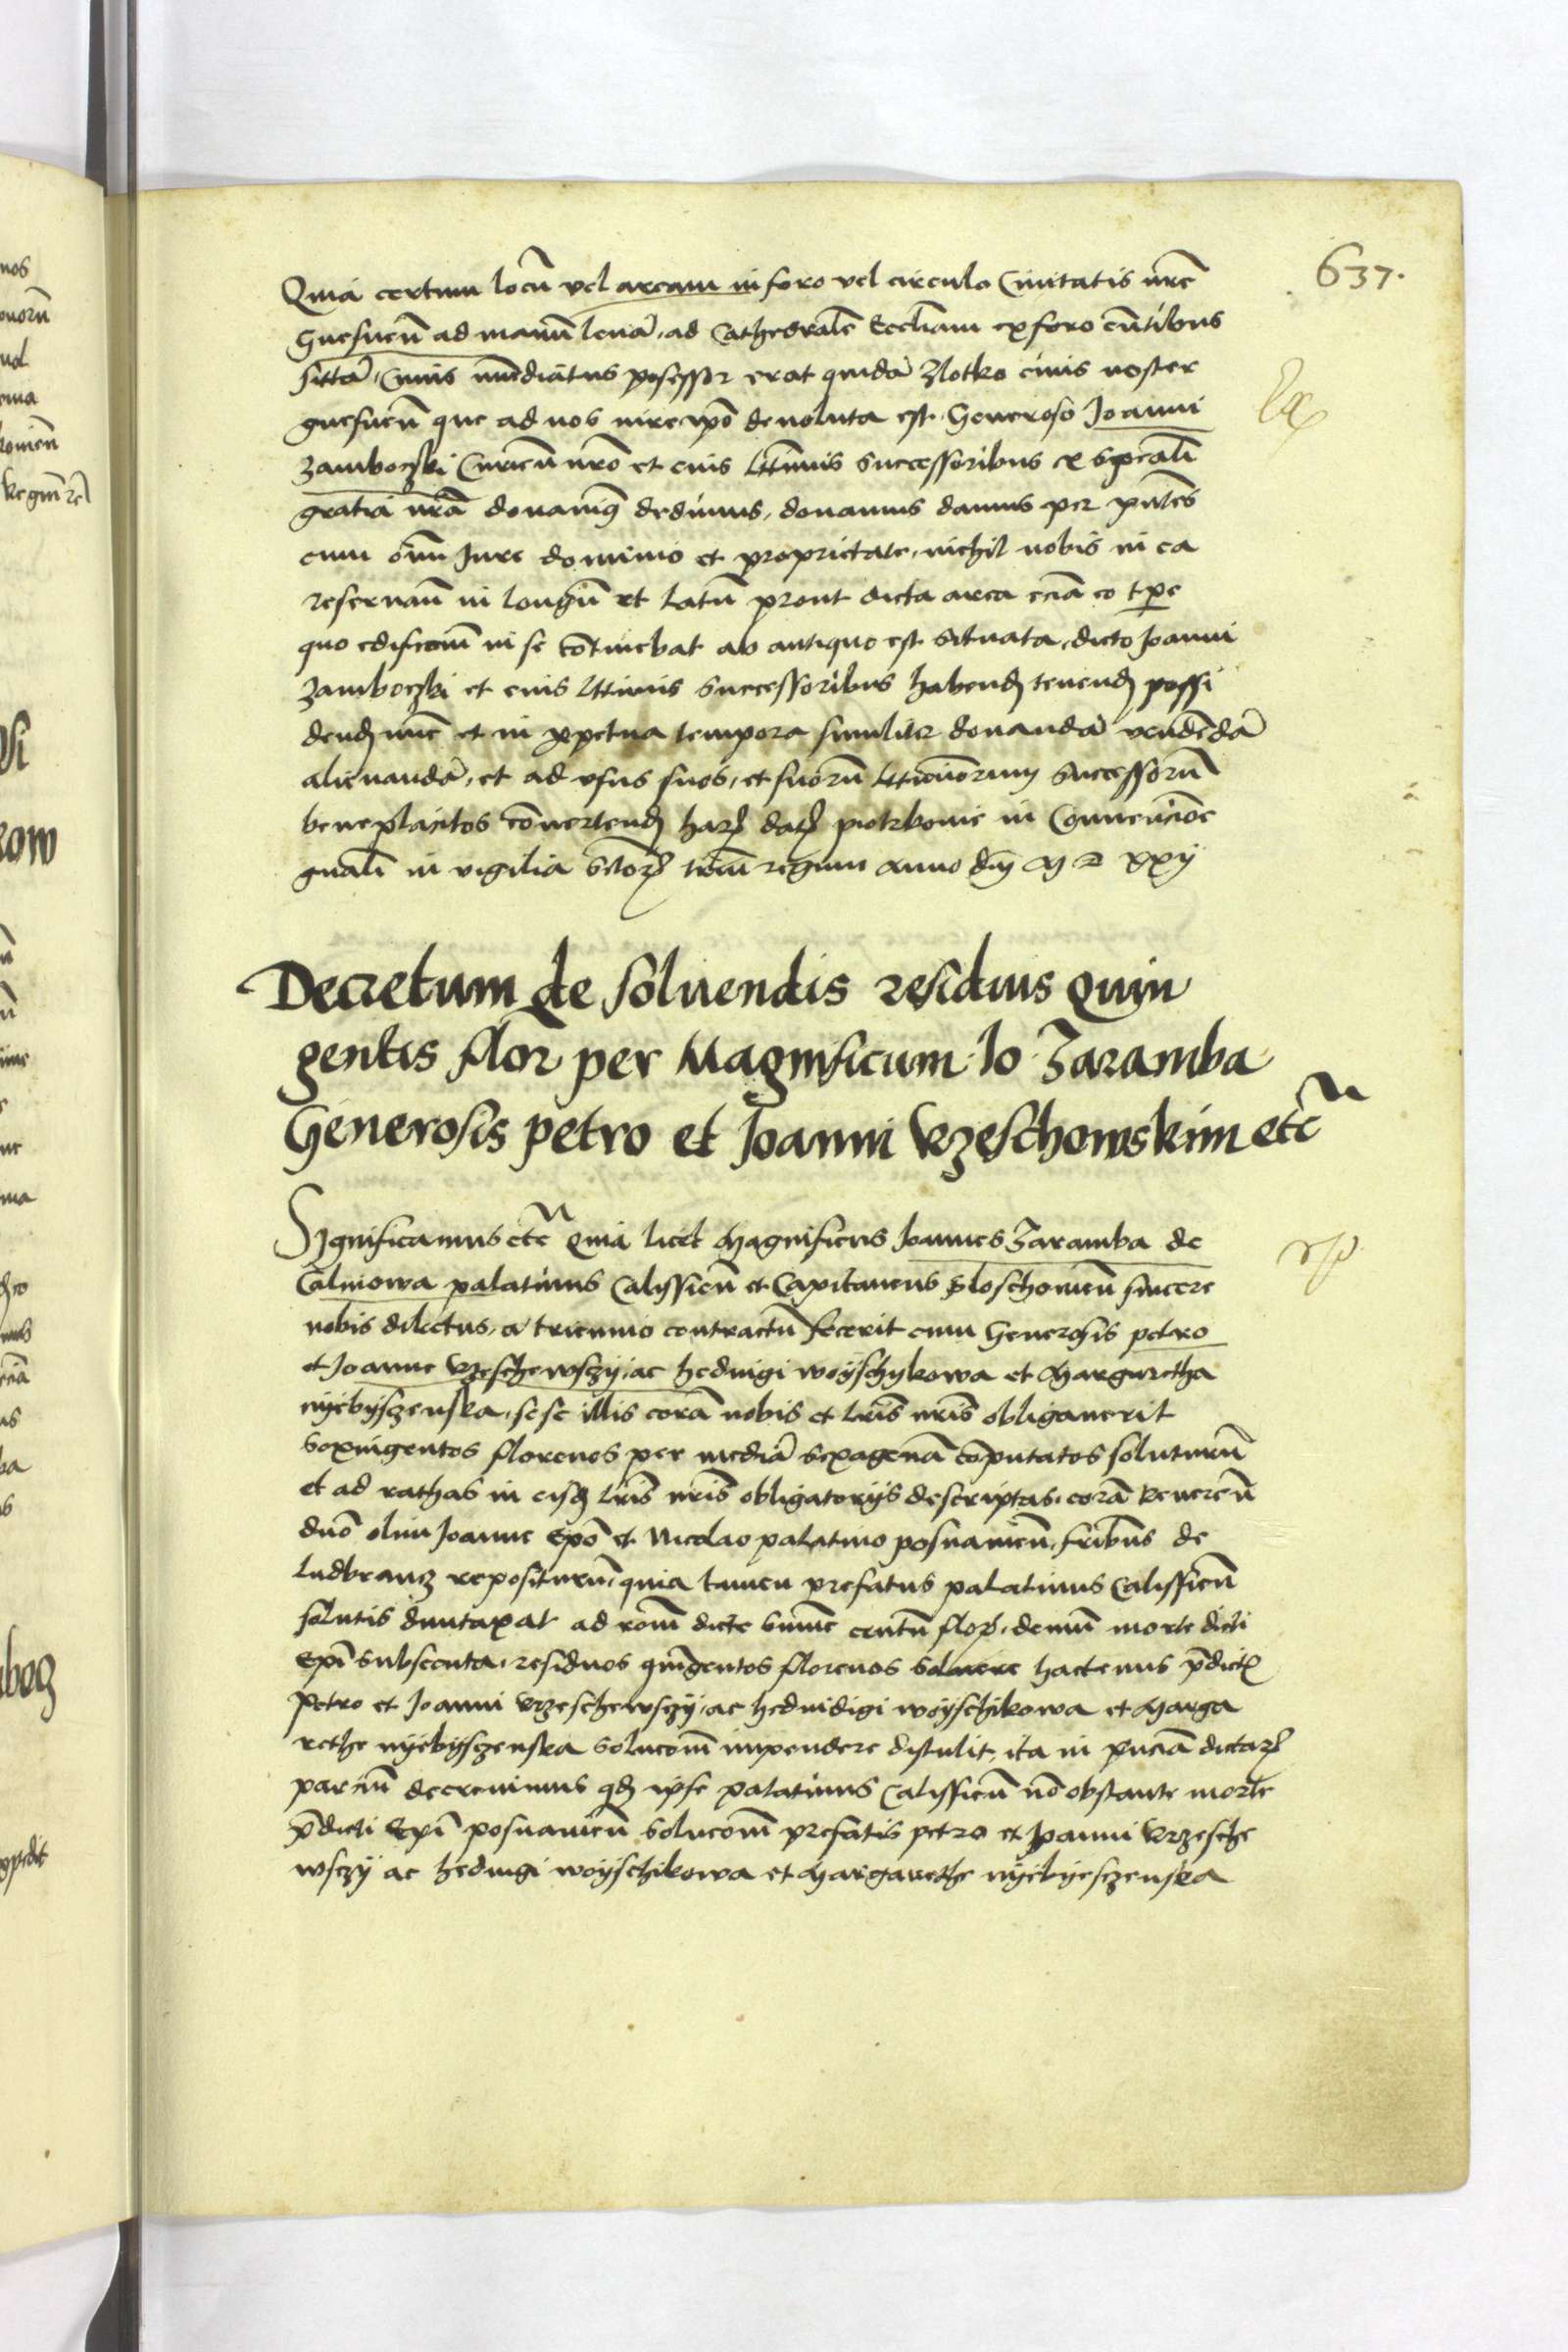 637.
Quia certum locū vel aream in foro vel circulo Civitatis nrē
Gnesneñ ad manū levā, ad Cathedralē Eccliam ex foro eūtibus
sittā, Cuius īmediatus possessor erat quidā Zlotko civis noster
gnesneñ que ad nos devoluta est Generoso Joanni
Zamborski Curieñ nrō et eius lttimis successoribus ex spcali
gratia nrā donavimꝰ dedimus, donamus damus per pntes
cum omī Jure dominio et proprietate, nichil nobis in ea
reservañ in longū et latū prout dicta area eciā eo tpe
quo edificium in se cōtinebat ab antiquo est situata, dicto Joanni
Zamborski et eius lttimis successoribus habend tenend possi
dend nūc et in ppetua tempora similiter donandā vendēdā
alienandā, et ad usus suos, et suorū lttimorum successorū
beneplacitos cōvertend harꝝ datꝝ piotrkovie in Convencioē
gnali in vigilia sctorꝝ triū regum anno dnj M D XXij
Decretum de solvendis residuis Quin
gentis flor per Magnificum Io Zaramba
Generosis petro et Joanni Vrzeschowskim etc
Significamus etc Quia licet Magnificus Joannes Zaramba de
Calinowa palatinus Calissieñ et Capitaneus sincere
nobis dilectus, a triennio contractū fecerit cum Generosis petro
et Joanne Vrzeschewszij, ac hedvigi woyschykowa et Margaretha
nyebyszenska, sese illis corā nobis et lrīs nrīs obligaverit
sexingentos florenos per mediā sexagenā cōputatos soluturū
et ad rathas in eisd lrīs nrīs obligatorijs descriptas, corā Revereñ
dnō olim Joanne Epō et Nicolao palatino posnanieñ, frībus de
Lubrancz repositurū, quia tamen prefatus palatinus Calissieñ
solutis duntaxat ad romī dicte summe centū florꝝ, demū morte dicti
Epī subsecuta, residuos quīgentos florenos solvere hactenus pdictꝭ
Petro et Joanni Vrzeschewszij, ac hedvidigi woyschikowa et Marga
rethe nyebyszenska solucōnī impendere distulit, ita in pñciā dictarꝝ
parciū decrevimus qd ipse palatinus Calissieñ nō obstante morte
pdicti Epī posnanieñ solucōnī prefatis petro et Joanni Vrzesche
wszy ac hedvigi woyschikowa et Margarethe nyebyeszenska